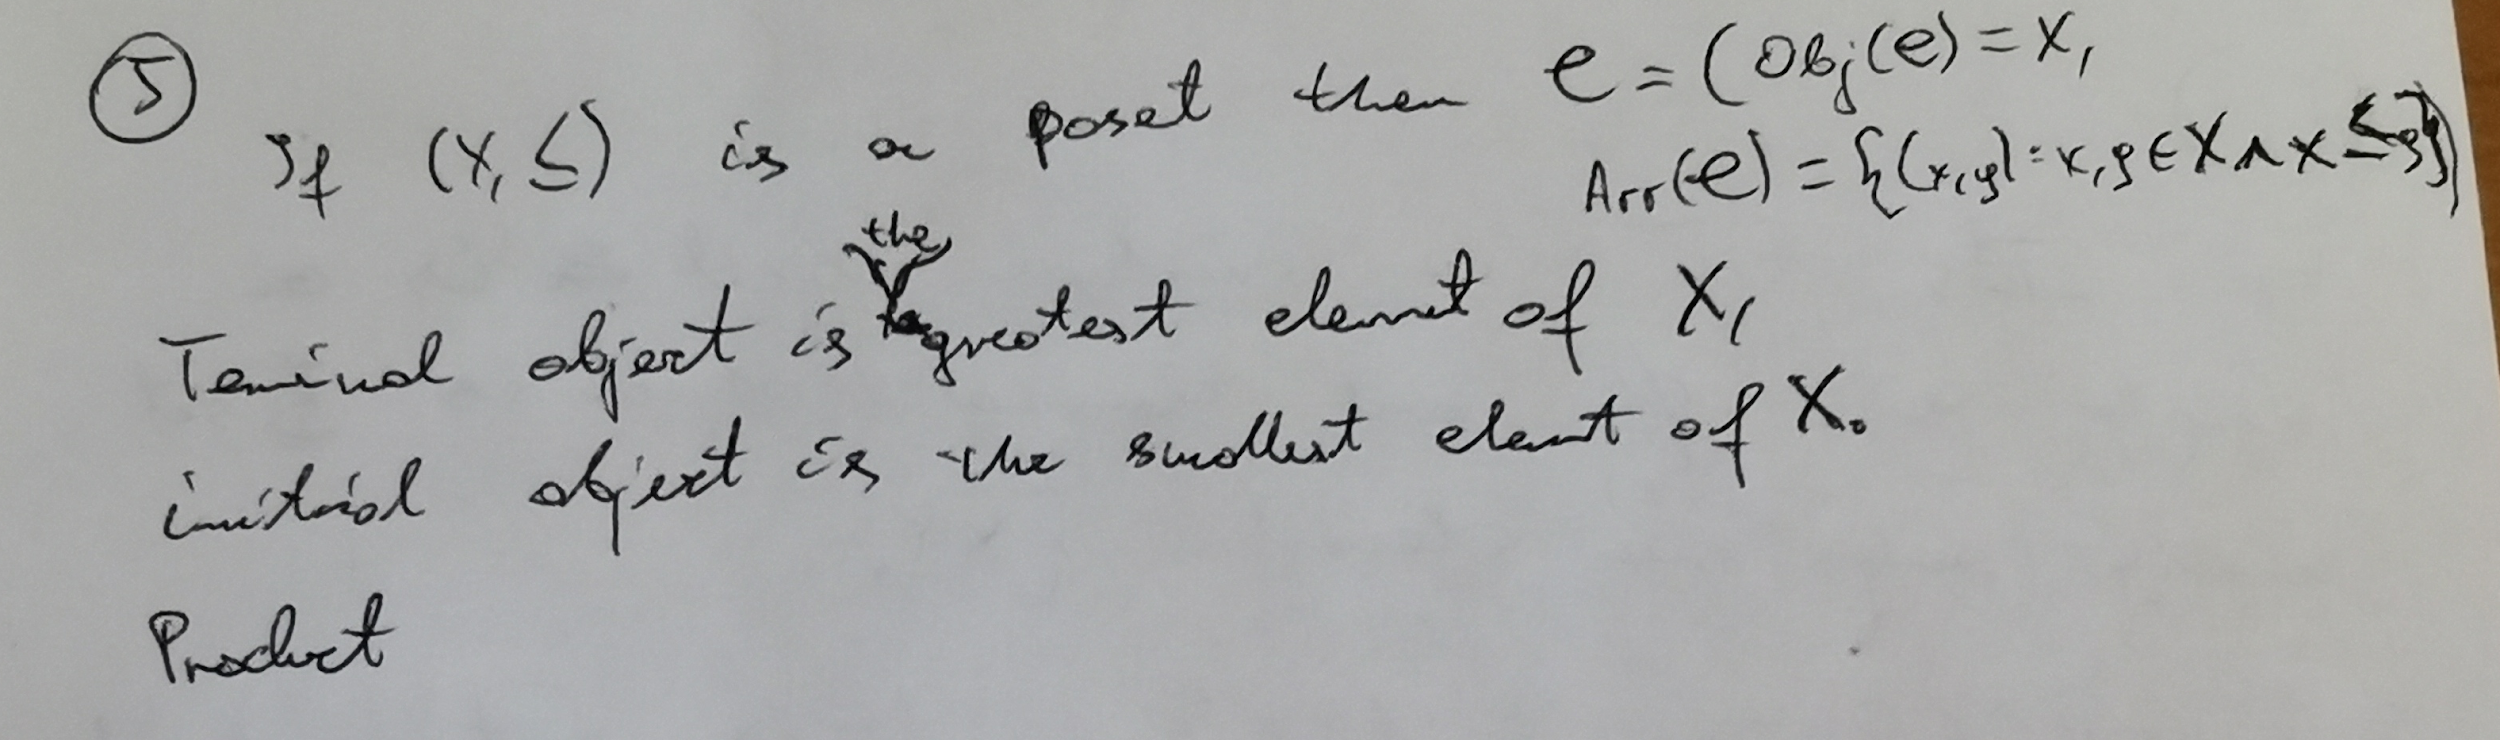 ⑤
If (X, ≤) is a poset then 𝒞 = (Obj(𝒞) = X,
Arr(𝒞) = {(x,y) : x,y ∈ X ∧ x ≤ y})
Teminal object is the greatest element of X,
initial object is the smallest element of X.
Product